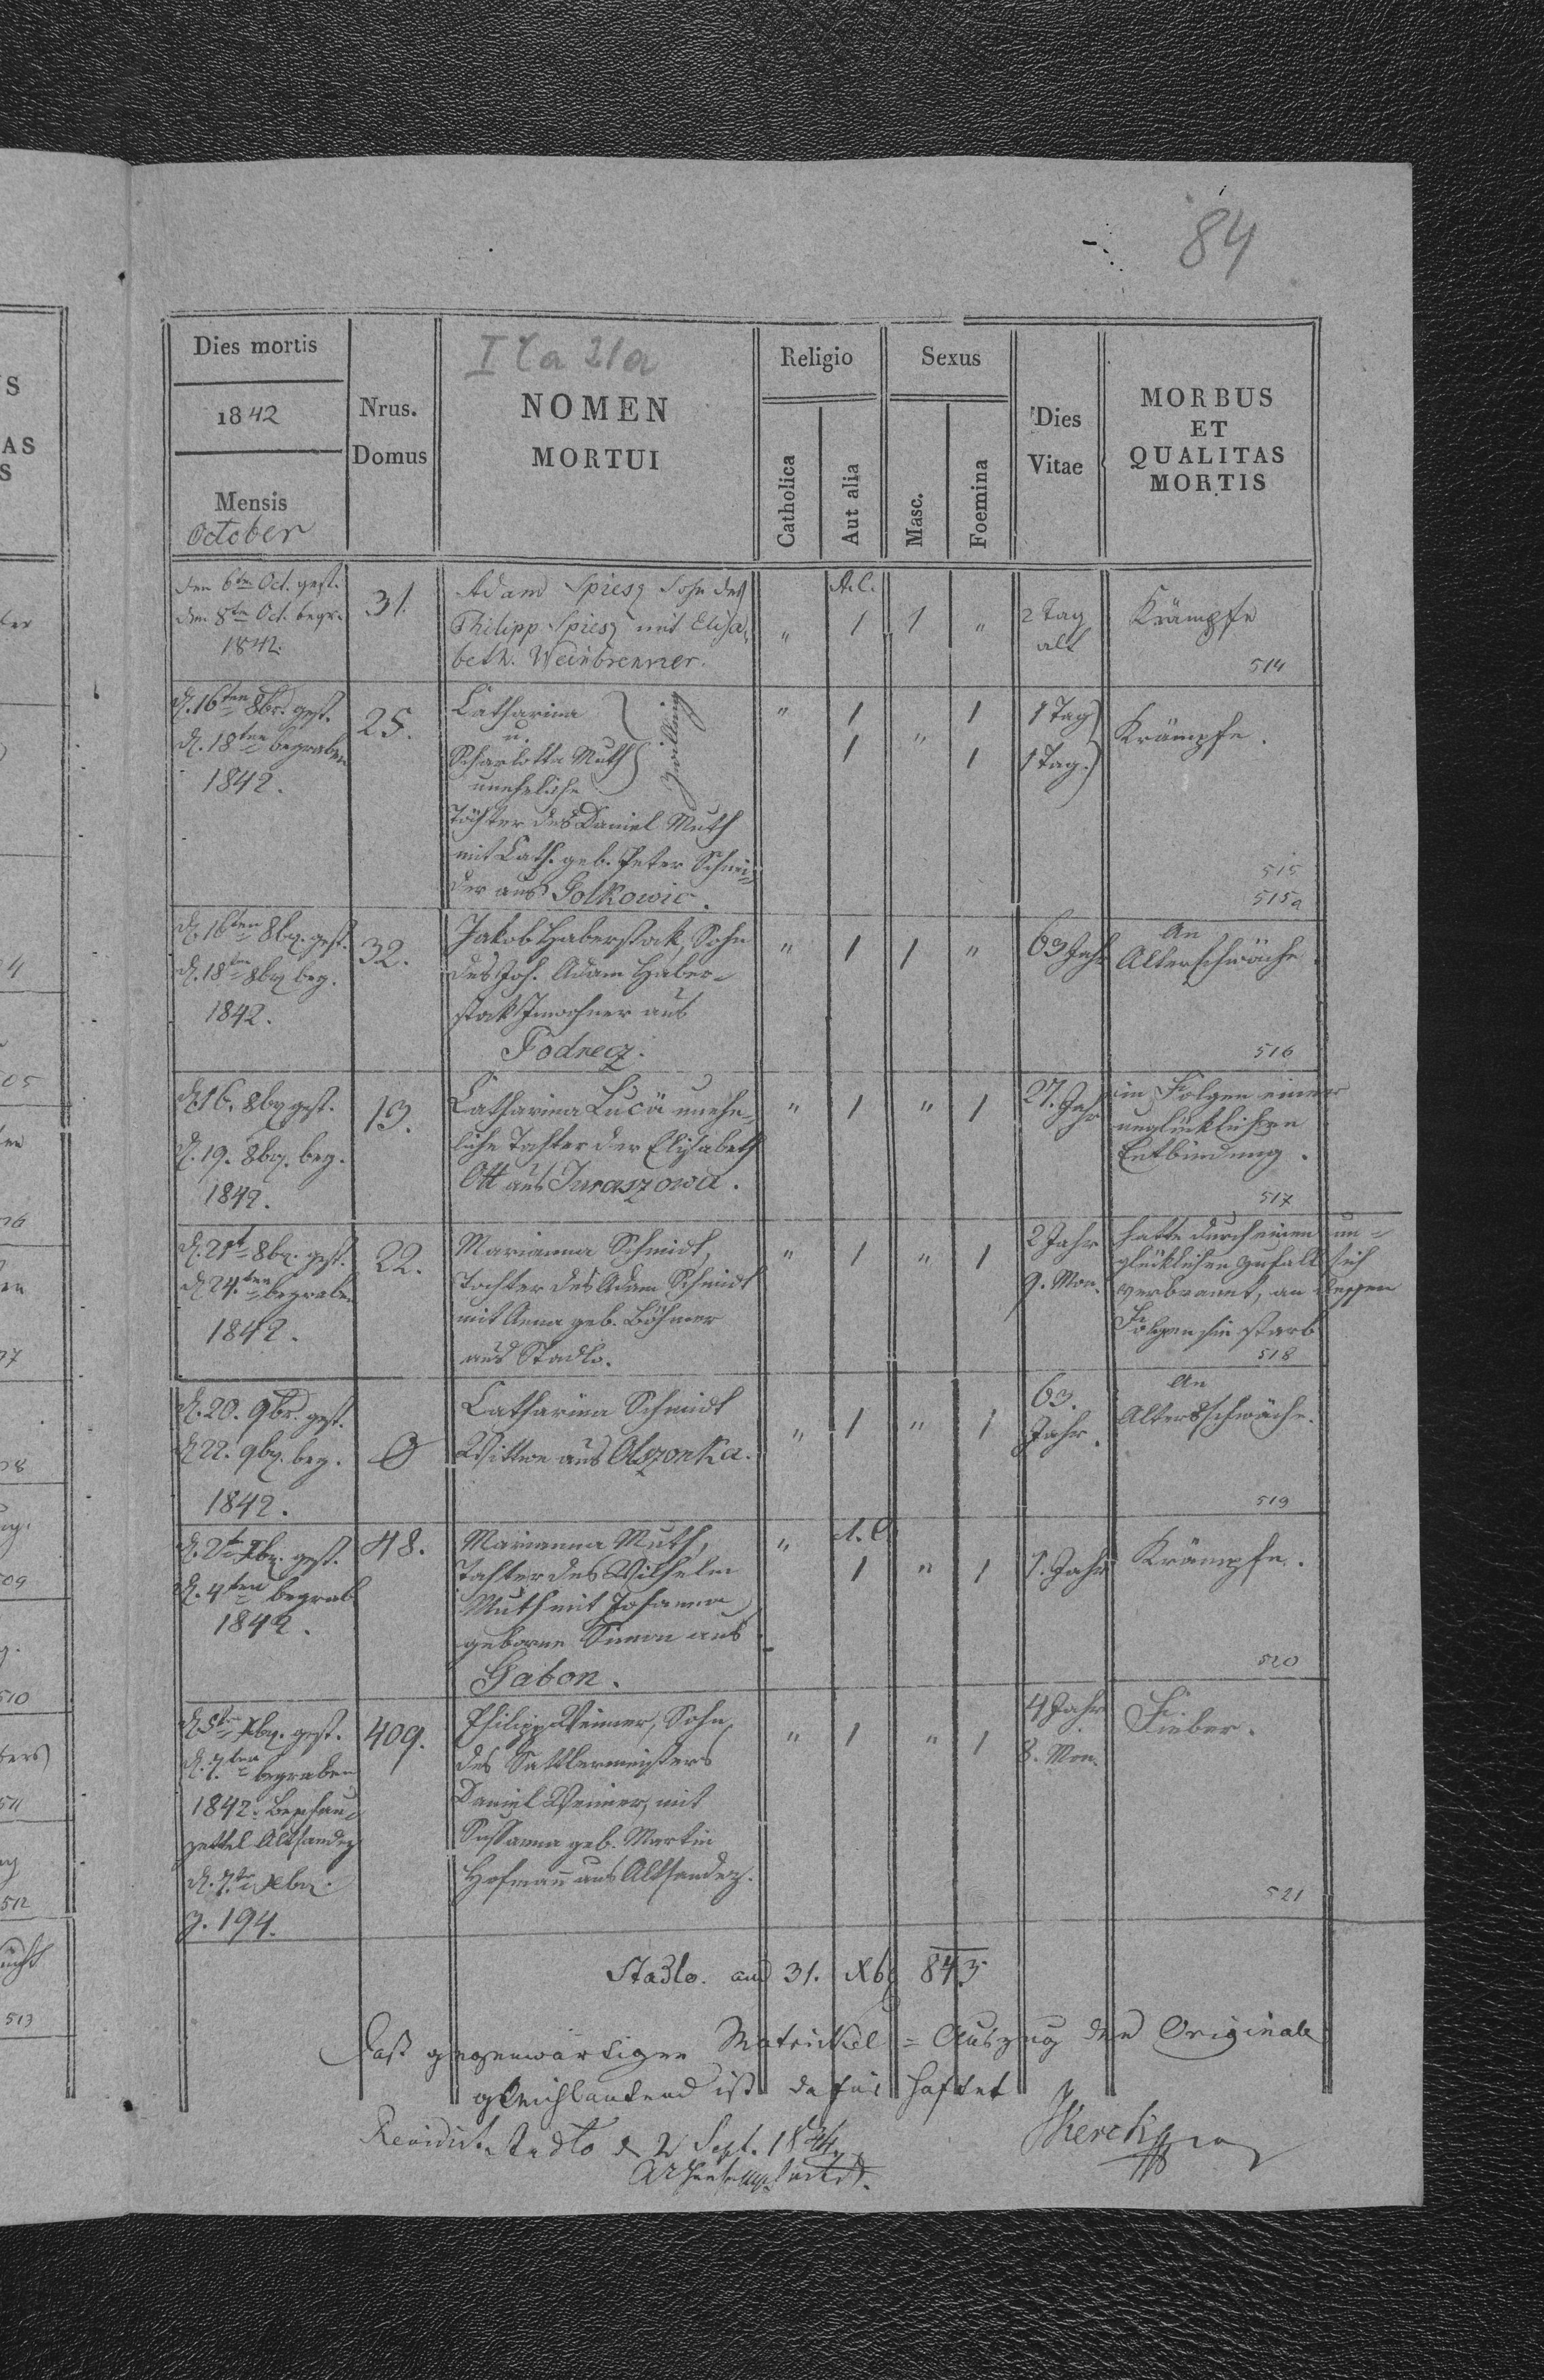 84
I la 21a
Dies mortis
1842
Mensis
October
Nrus.
Domus
NOMEN
MORTUI
Religio
Catholica
Aut alia
Sexus
Masc.
Foemina
Dies
Vitae
MORBUS
ET
QUALITAS
MORTIS
den 6ten Oct. gest.
den 8ten Oct. begr.
1842.
31.
Adam Spiesz Sohn des
Philipp Spiesz mit Elisa,
beth. Weinbrenner.
"
A.C.
1
1
"
2 Tag
alt
Krämpfe
514
d. 16ten 8br. gest.
d. 18ten begraben
1842.
25.
Catharina
u.
Scharlotta Muth
Zwilling
uneheliche
Töchter des Daniel Muth
mit Cath. geb. Peter Schnei-
der aus Golkowic.
"
1
1
"
1
1
1 Tag
1 Tag.
Krämpfe.
515
515a
d. 16ten 8br. gest.
d. 18ten 8br beg.
1842.
32.
Jakob Haberstak, Sohn
des Joh. Adam Haber-
stak Inwohner aus
Podrecz.
"
1
1
"
63 Jahr
An
Alterschwäche.
516
d. 16. 8br gest.
d. 19. 8br. beg.
1842.
13.
Catharina Lucä unehe-
liche Tochter der Elisabeth
Ott aus Juraszowa.
"
1
"
1
27. Jahr
in Folgen einer
unglücklichen
Entbindung.
517
d. 21t 8br. gest.
d 24.ten begraben
1842.
22.
Marianna Schmidt,
Tochter des Adam Schmidt
mit Anna geb. Böhmer
aus Stadlo.
"
1
"
1
2 Jahr
9. Mon.
hatte durch einen un-
glücklichen Zufall sich
verbrannt, an dessen
Folgen sie starb
518
d. 20. 9br. gest.
d. 22. 9br. beg.
1842.
0
Catharina Schmidt
Wittwe aus Olszonka.
"
1
"
1
63.
Jahr.
An
Altersschwäche.
519
d. 2t Xbr. gest.
d. 4ten begrab
1842.
48.
Marianna Muth,
Tochter des Wilhelm
Muth mit Johanna
geborne Simon aus
Gabon.
"
A. C.
1
"
1
1. Jahr
Krämpfe.
520
d. 5t Xbr. gest.
d. 7.ten begraben
1842. Beschau-
zettel Altsandez
d. 7.t Xbr.
z. 194.
409.
Philipp Weimer, Sohn
des Sattlermeisters
Daniel Weimer, mit
Sussanna geb. Martin
Hofmann aus Altsandez.
"
1
"
1
4 Jahr
8. Mon.
Fieber.
521
Stadlo. am 31. Xbr 843
Daß gegenwärtiger Matrickel = Auszug dem Originale
gleichlautend ist dafür haftet
Revidirt. Stadlo d 2 Sept. 1844.